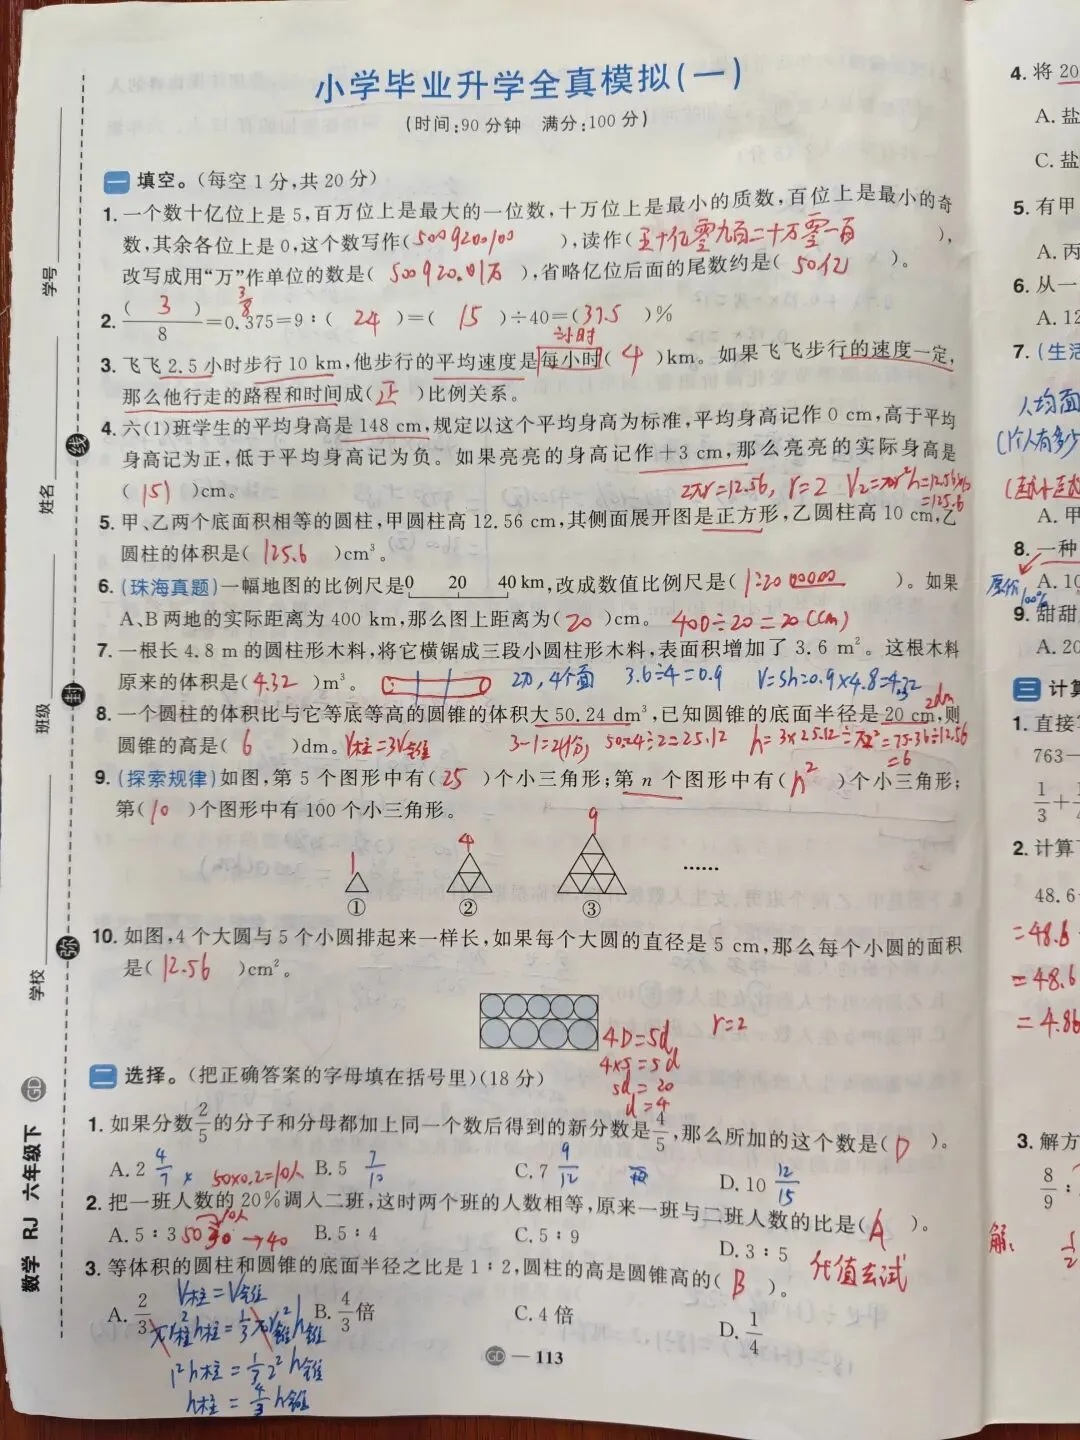 小学毕业升学全真模拟(一)
(时间:90分钟 满分:100分)
一 填空。(每空1分,共20分)
1. 一个数十亿位上是5,百万位上是最大的一位数,十万位上是最小的质数,百位上是最小的奇
数,其余各位上是0,这个数写作(5009200100),读作(五十亿零九百二十万零一百),
改写成用“万”作单位的数是(500920.01万),省略亿位后面的尾数约是(50亿)。
2. (3)/8=0.375=9:(24)=(15)÷40=(37.5)%
3/8
3. 飞飞2.5小时步行10 km,他步行的平均速度是每小时(4)km。如果飞飞步行的速度一定,
那么他行走的路程和时间成(正)比例关系。
4. 六(1)班学生的平均身高是148 cm,规定以这个平均身高为标准,平均身高记作0 cm,高于平均
身高记为正,低于平均身高记为负。如果亮亮的身高记作+3 cm,那么亮亮的实际身高是
(151)cm。
2πr=12.56, r=2
=125.6
5. 甲、乙两个底面积相等的圆柱,甲圆柱高12.56 cm,其侧面展开图是正方形,乙圆柱高10 cm,乙
圆柱的体积是(125.6)cm³。
6. (珠海真题)一幅地图的比例尺是0 20 40 km,改成数值比例尺是(1:2000000)。如果
A、B两地的实际距离为400 km,那么图上距离为(20)cm。 400÷20=20(cm)
7. 一根长4.8 m的圆柱形木料,将它横锯成三段小圆柱形木料,表面积增加了3.6 m²。这根木料
原来的体积是(4.32)m³。 2刀,4个面 3.6÷4=0.9 V=Sh=0.9×4.8=4.32
2dm
8. 一个圆柱的体积比与它等底等高的圆锥的体积大50.24 dm³,已知圆锥的底面半径是20 cm,则
圆锥的高是(6)dm。 V柱=3V锥 3-1=2(份) 50.24÷2=25.12 h=3×25.12÷π2²=75.36÷12.56
=6
9. (探索规律)如图,第5个图形中有(25)个小三角形;第n个图形中有(n²)个小三角形;
第(10)个图形中有100个小三角形。
1 4 9
① ② ③ ……
10. 如图,4个大圆与5个小圆排起来一样长,如果每个大圆的直径是5 cm,那么每个小圆的面积
是(12.56)cm²。
r=2
4D=5d
4×5=5d
5d=20
d=4
二 选择。(把正确答案的字母填在括号里)(18分)
1. 如果分数2/5的分子和分母都加上同一个数后得到的新分数是4/5,那么所加的这个数是(D)。
A. 2 4/7 × B. 5 7/10 C. 7 9/12 D. 10 12/15
50×0.2=10人
2. 把一班人数的20%调入二班,这时两个班的人数相等,原来一班与二班人数的比是(A)。
10人
A. 5:3 50 30 →40 B. 5:4 C. 5:9 D. 3:5
代值去试
3. 等体积的圆柱和圆锥的底面半径之比是1:2,圆柱的高是圆锥高的(B)。
A. 2/3 B. 4/3倍 C. 4倍 D. 1/4
V柱=V锥
πr²柱h柱=1/3πr²锥h锥
1²h柱=1/3 2²h锥
h柱=4/3h锥
GD — 113
学号
姓名
班级
学校
线
封
弥
数学 RJ 六年级下 GD
4. 将20
A. 盐
C. 盐
5. 有甲
A. 丙
6. 从一
A. 12
7. (生活
人均面
(1个人有多少
A. 甲
8. 一种
原价
100%
A. 10
9. 甜甜
A. 20
三 计算
1. 直接
763—
1/3+
2. 计算
48.6
=48.6
=48.6
=4.86
3. 解方
8/9:
解:
1/2